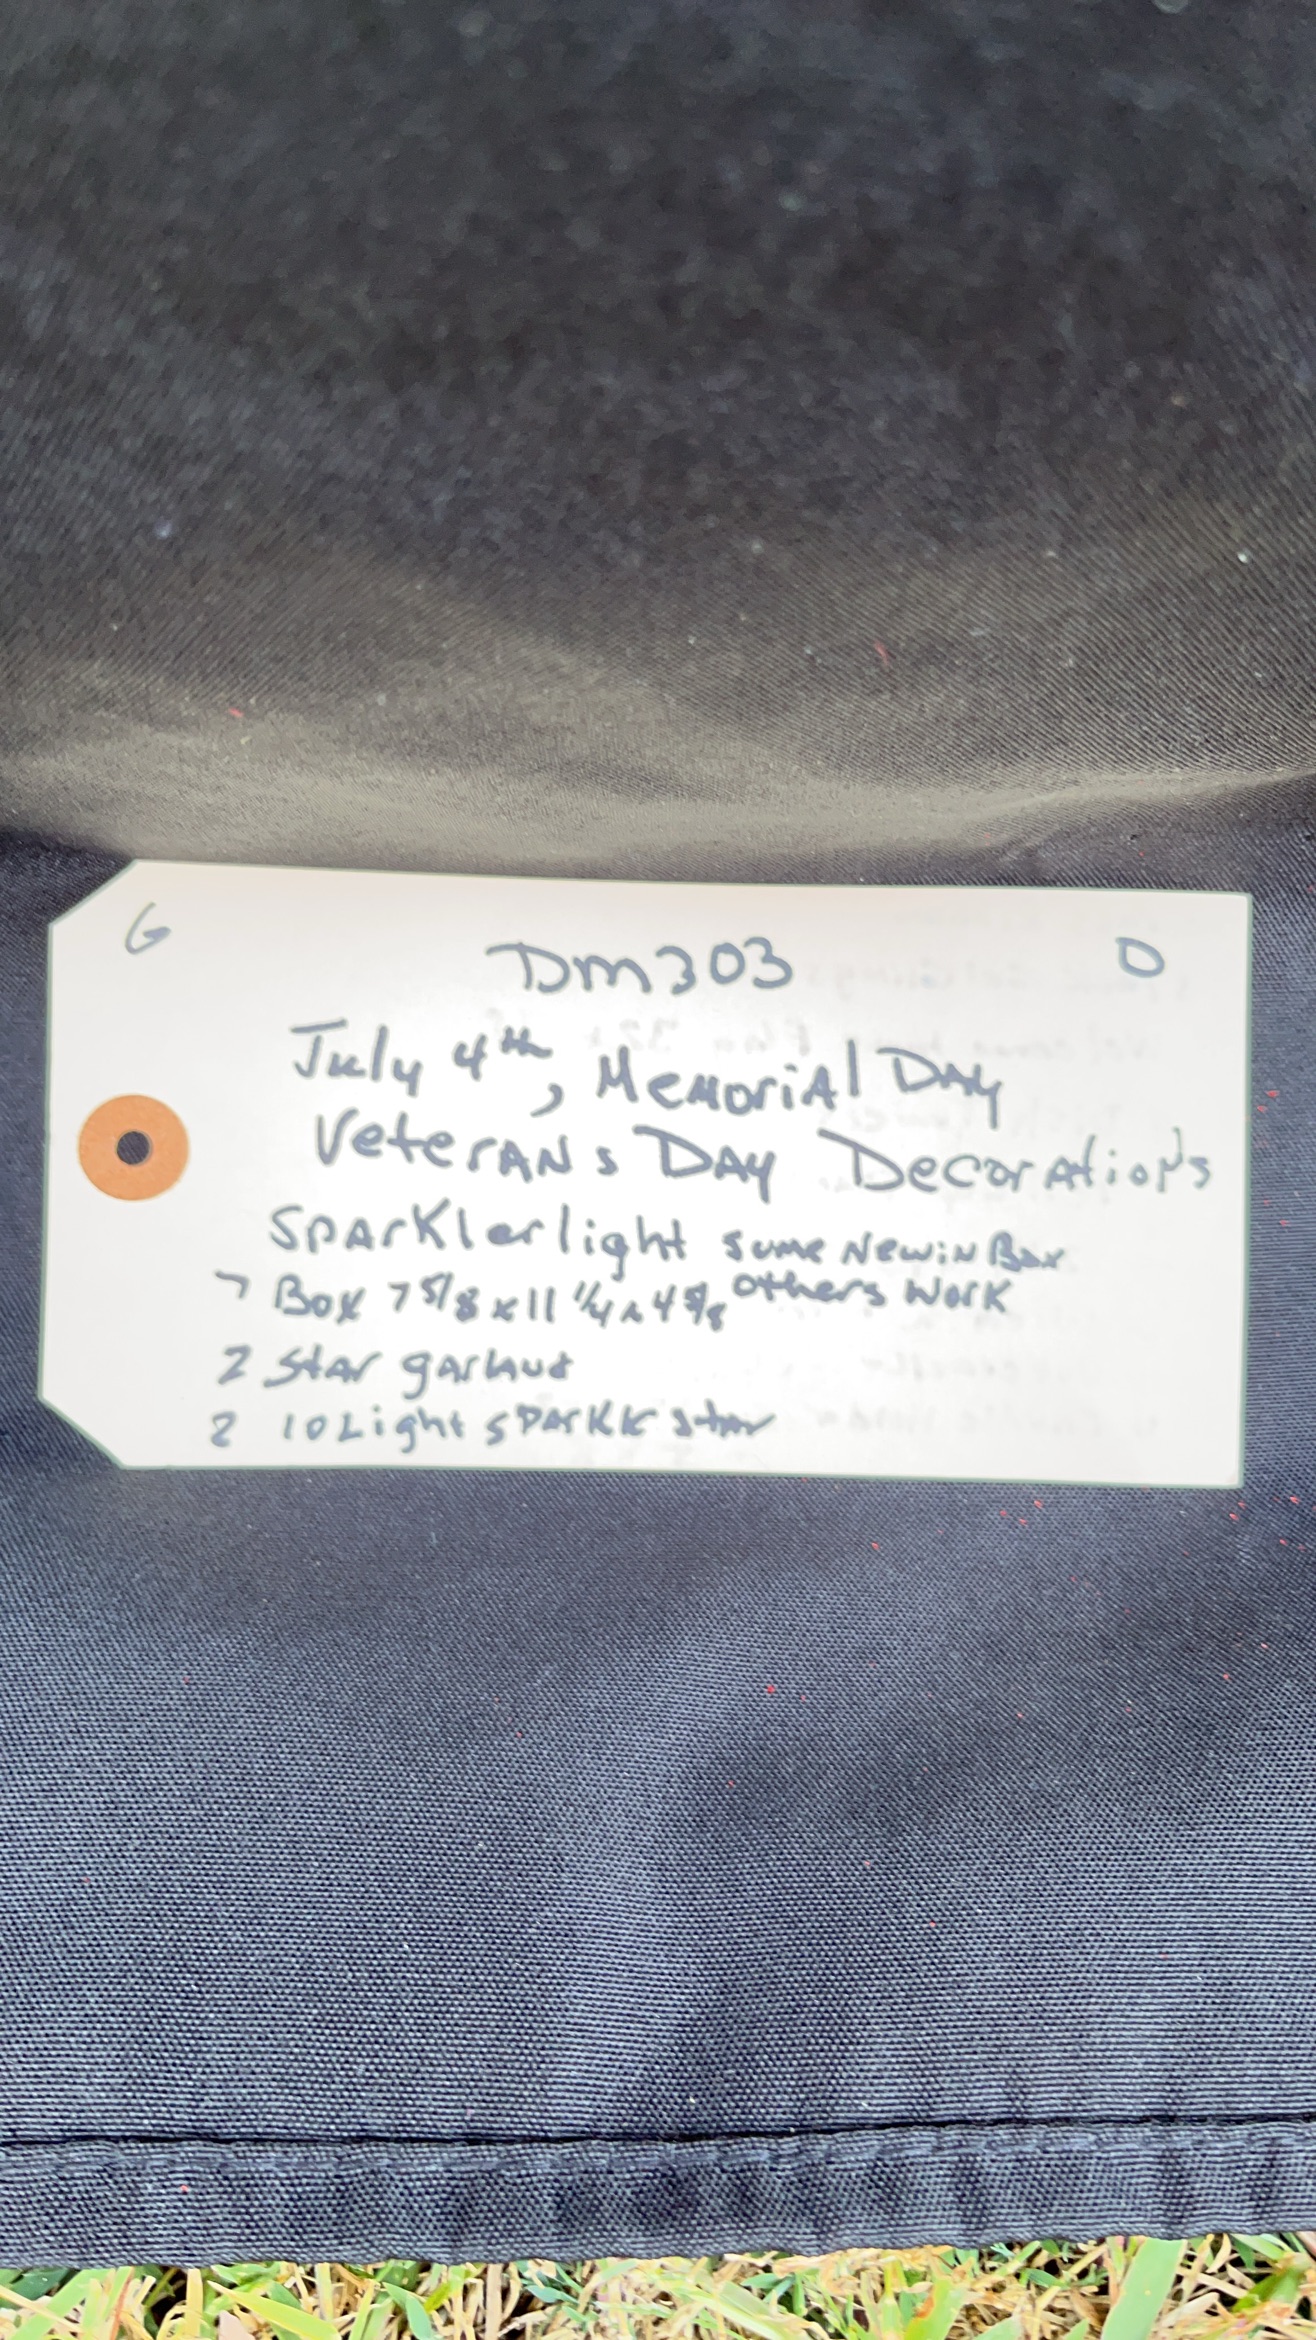 G DM303 O
July 4th, Memorial Day
Veterans Day Decorations
Sparklerlight some New in Box
7 Box 7 5/8 x 11 1/4 x 4 5/8 others work
2 star garland
2 10 Light spark star